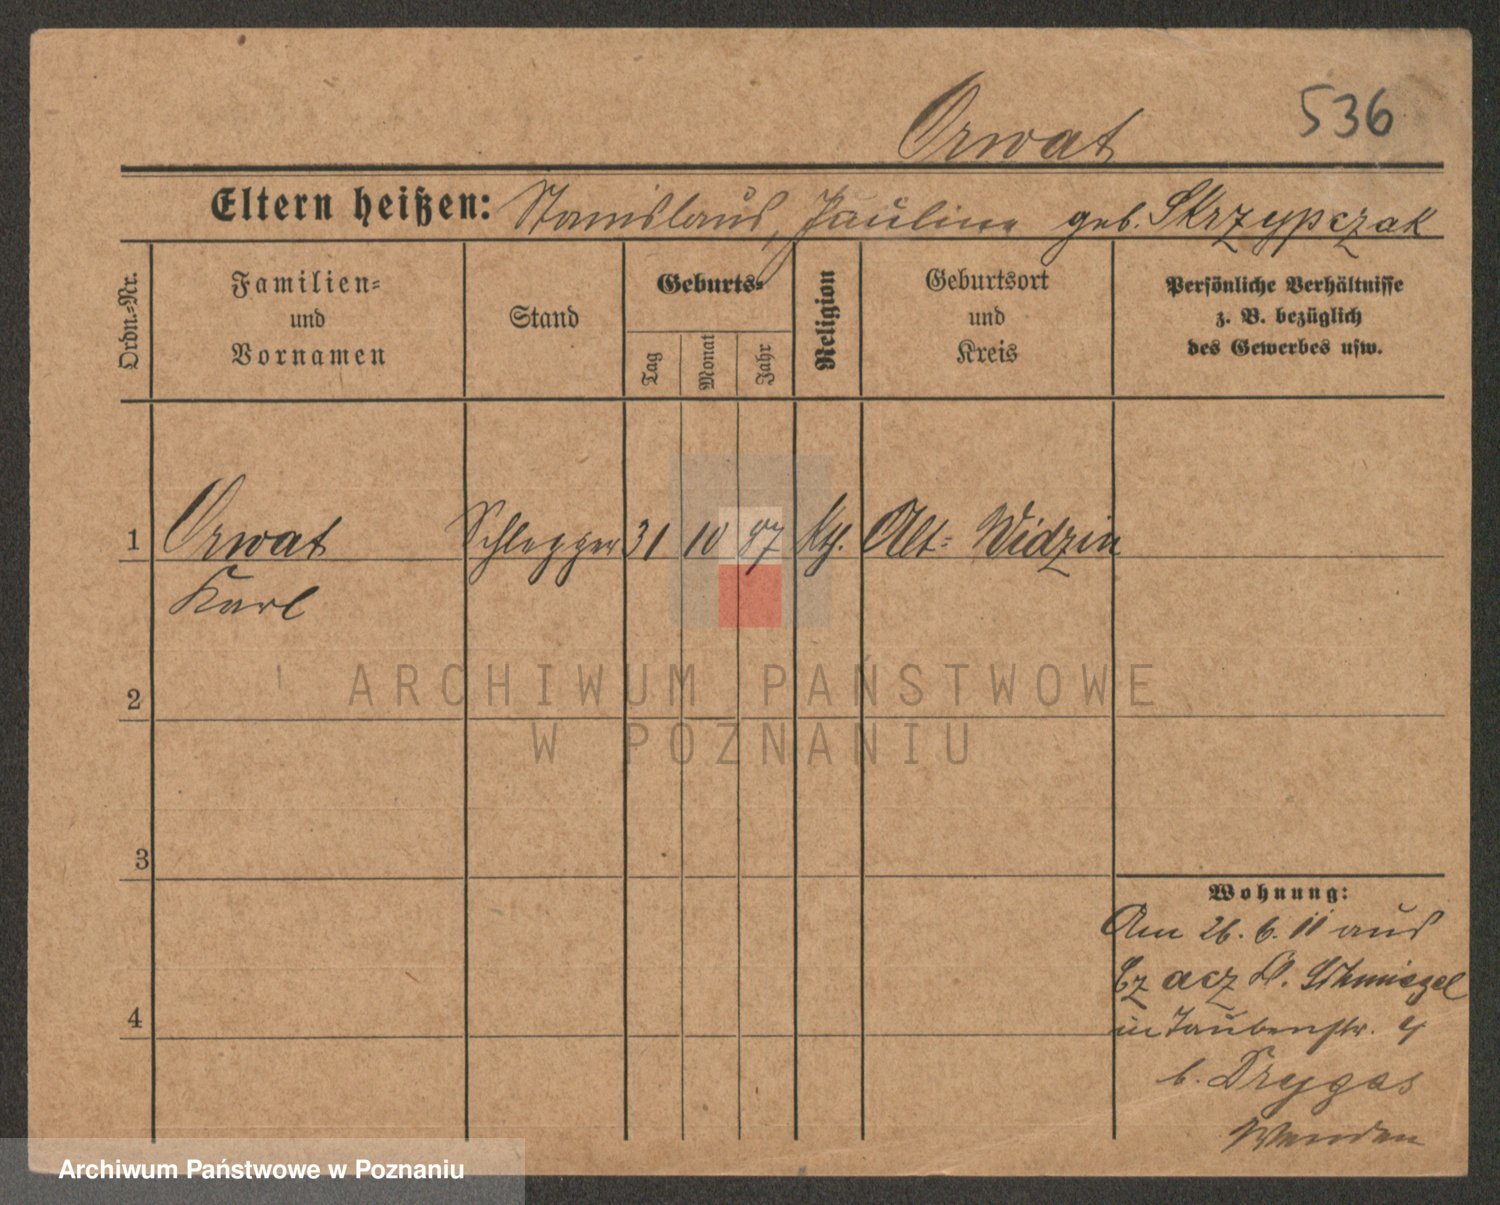 536
Orwat
Eltern heißen: Stanislaus, Pauline geb. Skrzypczak
Ordn.=Nr.
Familien=
und
Vornamen
Stand
Geburts=
Tag
Monat
Jahr
Religion
Geburtsort
und
Kreis
Persönliche Verhältnisse
z. B. bezüglich
des Gewerbes usw.
1 Orwat Schlepper 31 10 87 kth. Alt= Widzim
Karl
2
3
4
Wohnung:
Am 26. 6. 11 aus
Czacz K. Schmiegel
in Taubenstr. 4
b. Drygas
ARCHIWUM PAŃSTWOWE
W POZNANIU
Archiwum Państwowe w Poznaniu